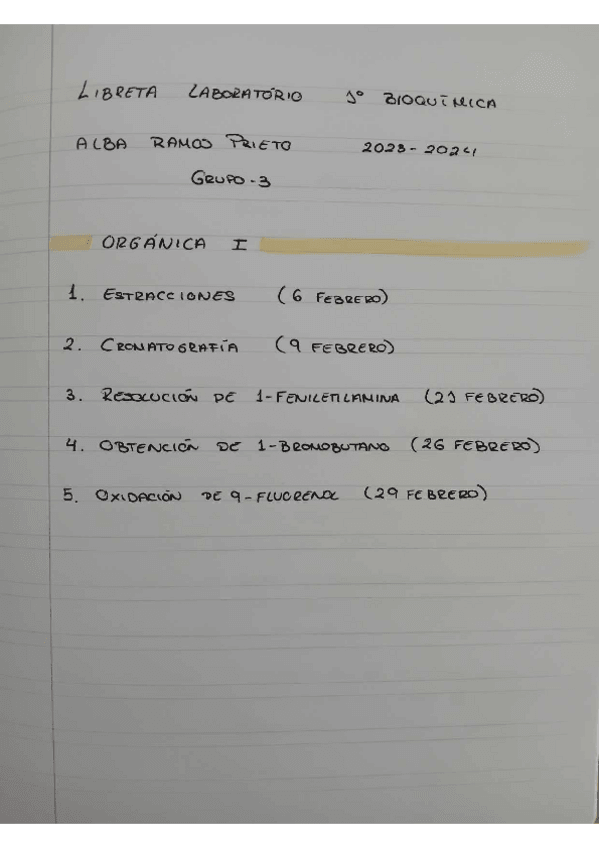 LIBRETA LABORATÓRIO 1º BIOQUÍMICA
ALBA RAMOS PRIETO 2023-2024
GRUPO-3
ORGÁNICA I
1. ESTRACCIONES (6 FEBRERO)
2. CROMATOGRAFÍA (9 FEBRERO)
3. RESOLUCIÓN DE 1-FENILETILAMINA (21 FEBRERO)
4. OBTENCIÓN DE 1-BROMOBUTANO (26 FEBRERO)
5. OXIDACIÓN DE 9-FLUORENOL (29 FEBRERO)